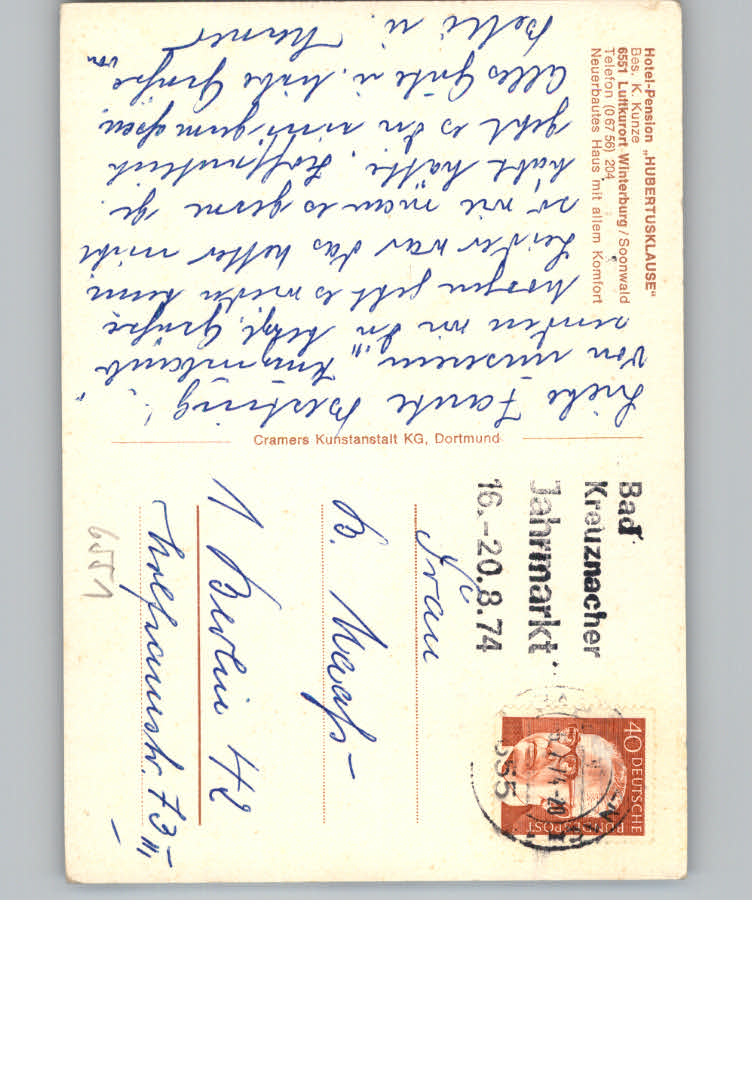 Hotel-Pension „HUBERTUSKLAUSE“
Bes. K. Kunze
6551 Luftkurort Winterburg/Soonwald
Telefon (0 67 56) 204
Neuerbautes Haus mit allem Komfort
Liebe Tante
Von unserem "
senden wir Dir herzl. Grüße
Morgen geht es wieder heim
Leider war das Wetter nicht
so wie man es gerne ge-
habt hätte. Hoffentlich
geht es Dir einigermaßen
Alles Gute u. liebe Grüße
von
u. Werner
Cramers Kunstanstalt KG, Dortmund
Bad
Kreuznacher
Jahrmarkt
16.-20.8.74
40 DEUTSCHE
BUNDESPOST
655
Frau
B. Maaß
1 Berlin 42
Wolframstr. 73 III
6551